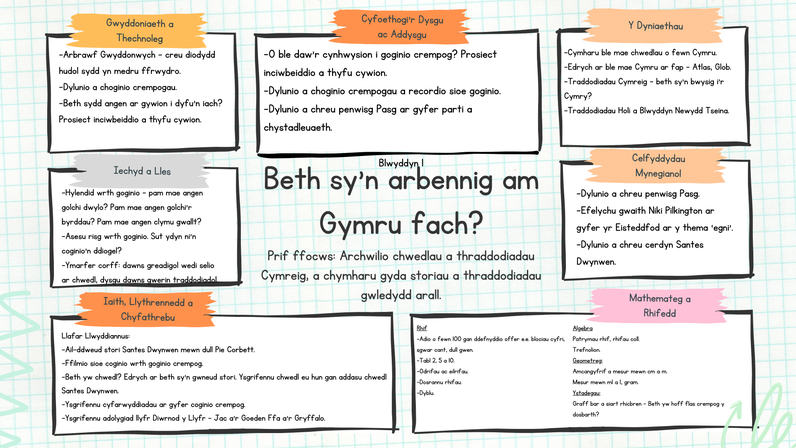 Gwyddoniaeth a
Thechnoleg
-Arbrawf Gwyddonwych - creu diodydd
hudol sydd yn medru ffrwydro.
-Dylunio a choginio crempogau.
-Beth sydd angen ar gywion i dyfu'n iach?
Prosiect inciwbeiddio a thyfu cywion.
Cyfoethogi'r Dysgu
ac Addysgu
-O ble daw'r cynhwysion i goginio crempog? Prosiect
inciwbeiddio a thyfu cywion.
-Dylunio a choginio crempogau a recordio sioe goginio.
-Dylunio a chreu penwisg Pasg ar gyfer parti a
chystadleuaeth.
Y Dyniaethau
-Cymharu ble mae chwedlau o fewn Cymru.
-Edrych ar ble mae Cymru ar fap - Atlas, Glob.
-Traddodiadau Cymreig - beth sy'n bwysig i'r
Cymry?
-Traddodiadau Holi a Blwyddyn Newydd Tseina.
Iechyd a Lles
-Hylendid wrth goginio - pam mae angen
golchi dwylo? Pam mae angen golchi'r
byrddau? Pam mae angen clymu gwallt?
-Asesu risg wrth goginio. Sut ydyn ni'n
coginio'n ddiogel?
-Ymarfer corff: dawns greadigol wedi selio
ar chwedl, dysgu dawns gwerin traddodiadol
Blwyddyn 1
Beth sy'n arbennig am
Gymru fach?
Prif ffocws: Archwilio chwedlau a thraddodiadau
Cymreig, a chymharu gyda storiau a thraddodiadau
gwledydd arall.
Celfyddydau
Mynegiannol
-Dylunio a chreu penwisg Pasg.
-Efelychu gwaith Niki Pilkington ar
gyfer yr Eisteddfod ar y thema 'egni'.
-Dylunio a chreu cerdyn Santes
Dwynwen.
Iaith, Llythrennedd a
Chyfathrebu
Llafar Llwyddiannus:
-Ail-ddweud stori Santes Dwynwen mewn dull Pie Corbett.
-Ffilmio sioe coginio wrth goginio crempog.
-Beth yw chwedl? Edrych ar beth sy'n gwneud stori. Ysgrifennu chwedl eu hun gan addasu chwedl
Santes Dwynwen.
-Ysgrifennu cyfarwyddiadau ar gyfer coginio crempog.
-Ysgrifennu adolygiad llyfr Diwrnod y Llyfr - Jac a'r Goeden Ffa a'r Gryffalo.
Mathemateg a
Rhifedd
Rhif
-Adio o fewn 100 gan ddefnyddio offer e.e. blociau cyfri,
sgwar cant, dull gwen.
-Tabl 2, 5 a 10.
-Odrifau ac eilrifau.
-Dosrannu rhifau.
-Dyblu.
Algebra
Patrymau rhif, rhifau coll.
Trefnolion.
Geometreg:
Amcangyfrif a mesur mewn cm a m.
Mesur mewn ml a l, gram.
Ystadegau:
Graff bar a siart rhicbren - Beth yw hoff flas crempog y
dosbarth?